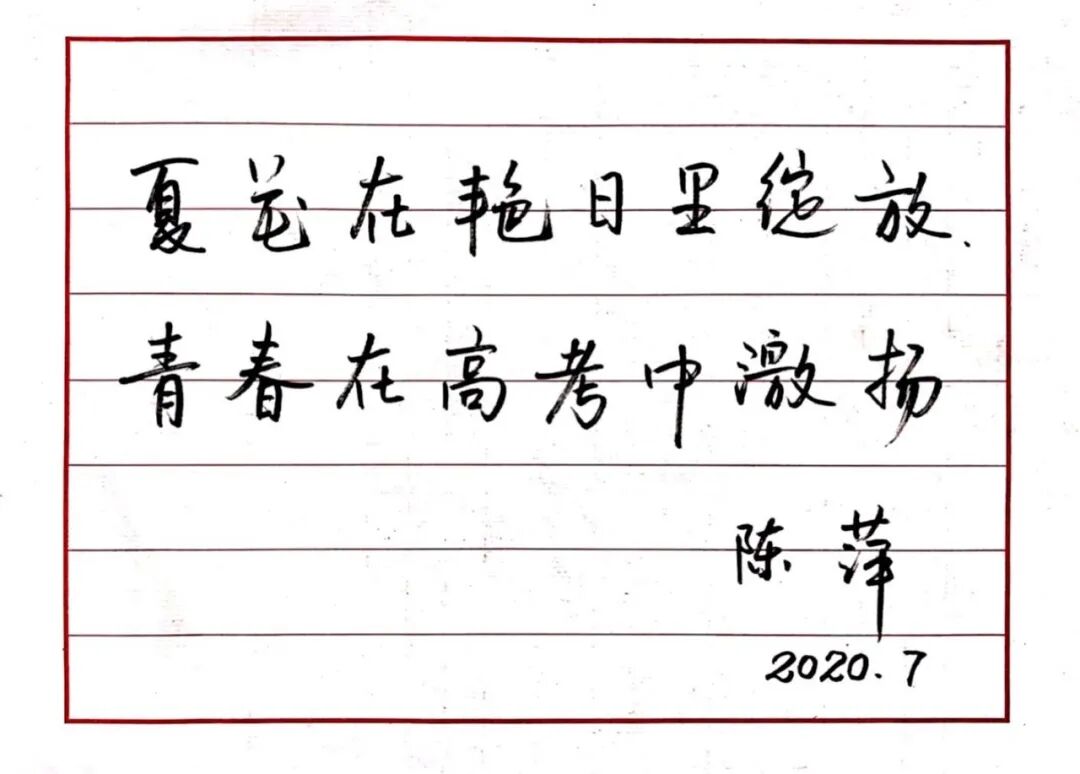 夏花在艳日里绽放、
青春在高考中激扬
陈萍
2020.7